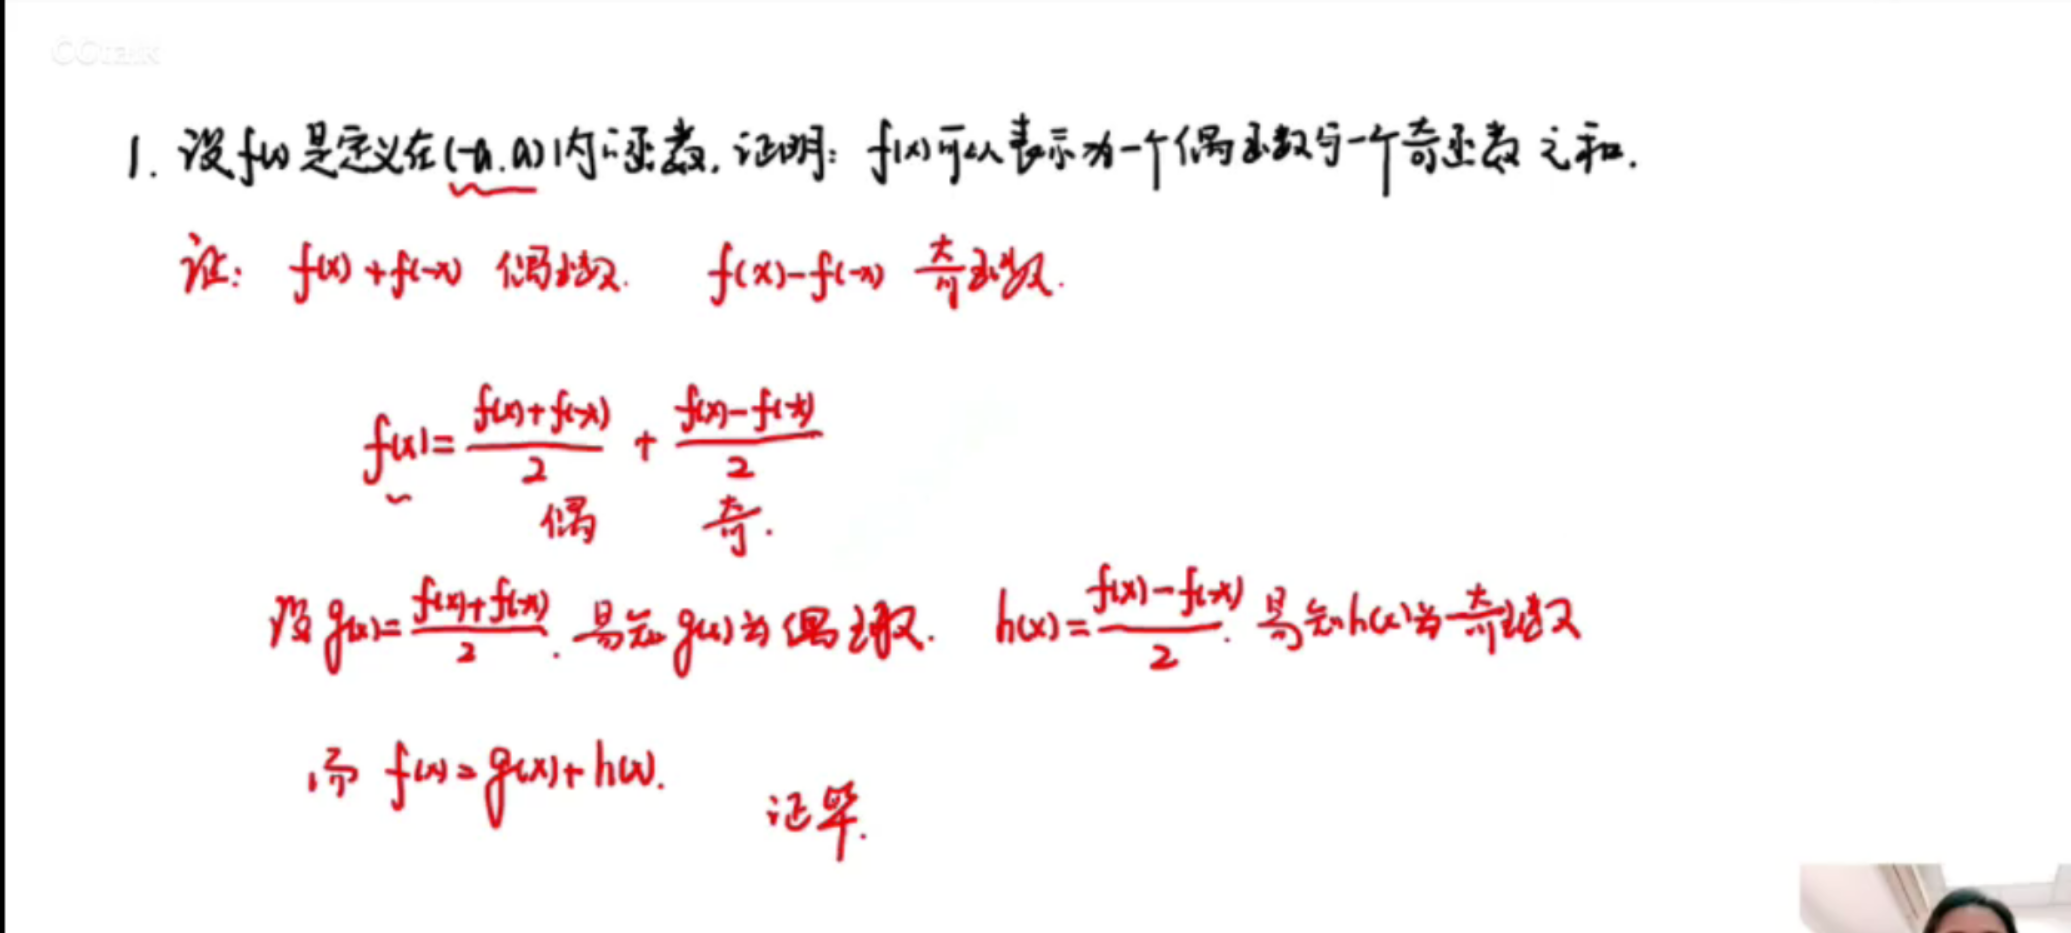 CCtalk
1. 设f(x)是定义在(-a.a)内的函数.证明: f(x)可以表示为一个偶函数与一个奇函数之和.
证: f(x)+f(-x) 偶函数. f(x)-f(-x) 奇函数.
f(x)= \frac{f(x)+f(-x)}{2} + \frac{f(x)-f(-x)}{2}
偶 奇.
设g(x)= \frac{f(x)+f(-x)}{2}. 易知g(x)为偶函数. h(x)= \frac{f(x)-f(-x)}{2}. 易知h(x)为奇函数
而 f(x)=g(x)+h(x).
证毕.